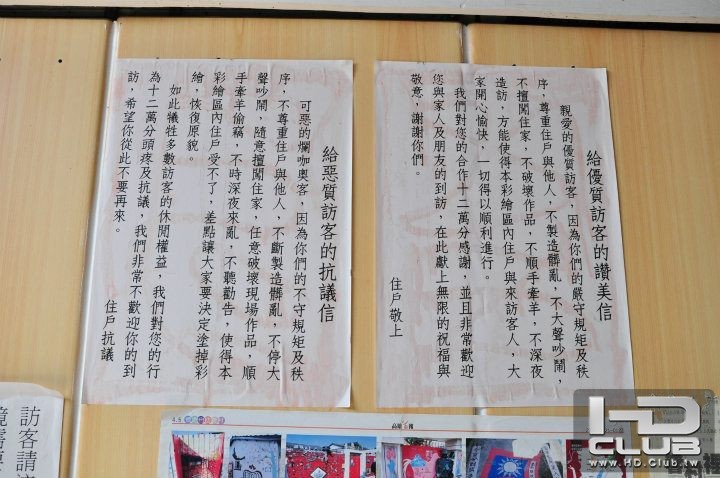 給優質訪客的讚美信
親愛的優質訪客，因為你們的嚴守規矩及秩
序，尊重住戶與他人，不製造髒亂，不大聲吵鬧，
不擅闖住家，不破壞作品，不順手牽羊，不深夜
造訪，方能使得本彩繪區內住戶與來訪客人，大
家開心愉快，一切得以順利進行。
我們對您的合作十二萬分感謝，並且非常歡迎
您與家人及朋友的到訪，在此獻上無限的祝福與
敬意，謝謝你們。
住戶敬上
給惡質訪客的抗議信
可惡的爛咖奧客，因為你們的不守規矩及秩
序，不尊重住戶與他人，不斷製造髒亂，不停大
聲吵鬧，隨意擅闖住家，任意破壞現場作品，順
手牽羊偷竊，不時深夜來亂，不聽勸告，使得本
彩繪區內住戶受不了，差點讓大家要決定塗掉彩
繪，恢復原貌。
如此犧牲多數訪客的休閒權益，我們對您的行
為十二萬分頭疼及抗議，我們非常不歡迎你的到
訪，希望你從此不要再來。
住戶抗議
訪客請
4.5
HD
CLUB
www.HD.Club.tw